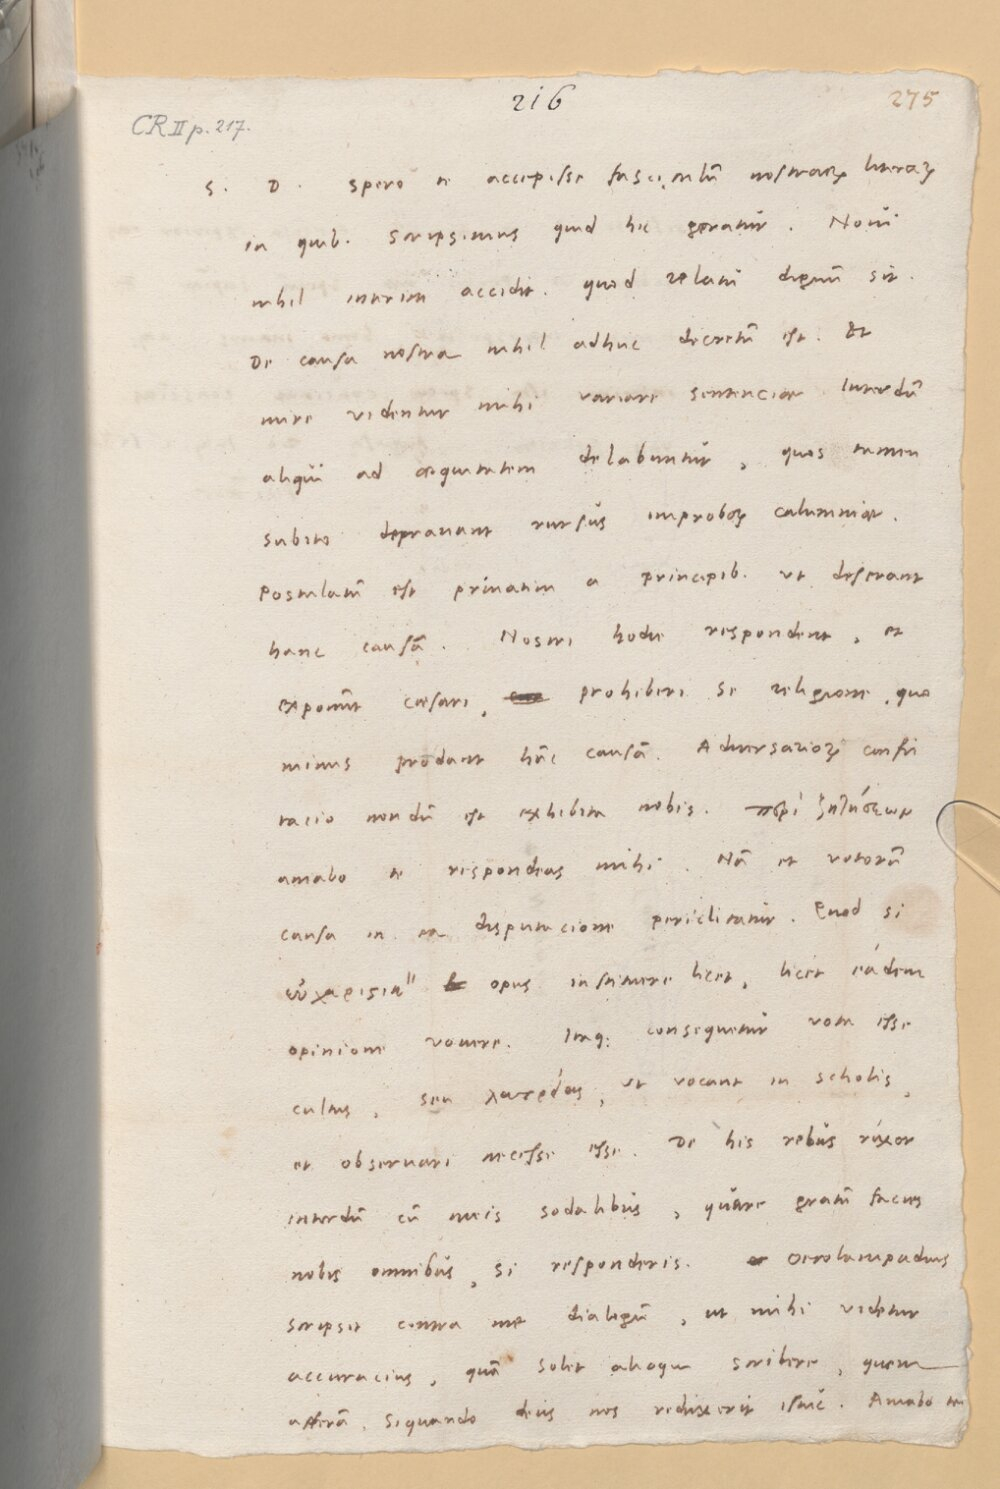 216
275
CR II p. 217.
S. D. Spero te accepisse fasciculū nostrarꝝ literarꝝ
in quib. scripsimus quid hic geratur. Novi
nihil interim accidit. quod relatu dignū sit.
De causa nostra nihil adhuc decretū est. Et
mire videntur mihi variare sentenciae Interdū
aliqui ad aequitatem delabuntur, quos tamen
subito depravant rursus improborꝝ calumniae.
Postulatū est privatim a principib. ut deserant
hanc causā. Nostri hodie respondent, et
exponūt caesari, prohiberi se religione, quo
minus prodant hāc causā. Adversariorꝝ confu
tacio nondū est exhibita nobis. περὶ ζητήσεων
amabo te respondeas mihi. Nā et votorū
causa in ea disputacione periclitatur. Quod si
εὐχαριστία opus instituere licet, licet eadem
opinione vovere. Itaq; consequetur vota esse
cultus, seu λατρείας, ut vocant in scholis,
et observari necesse esse. De his rebus rixor
interdū cū meis sodalibus, quare gratū facies
nobis omnibus, si responderis. Oecolampadius
scripsit contra me dialogū, ut mihi videtur
accuracius, quā solet alioqui scribere, quem
afferā, siquando deus nos reduxerit istuc. Amabo te